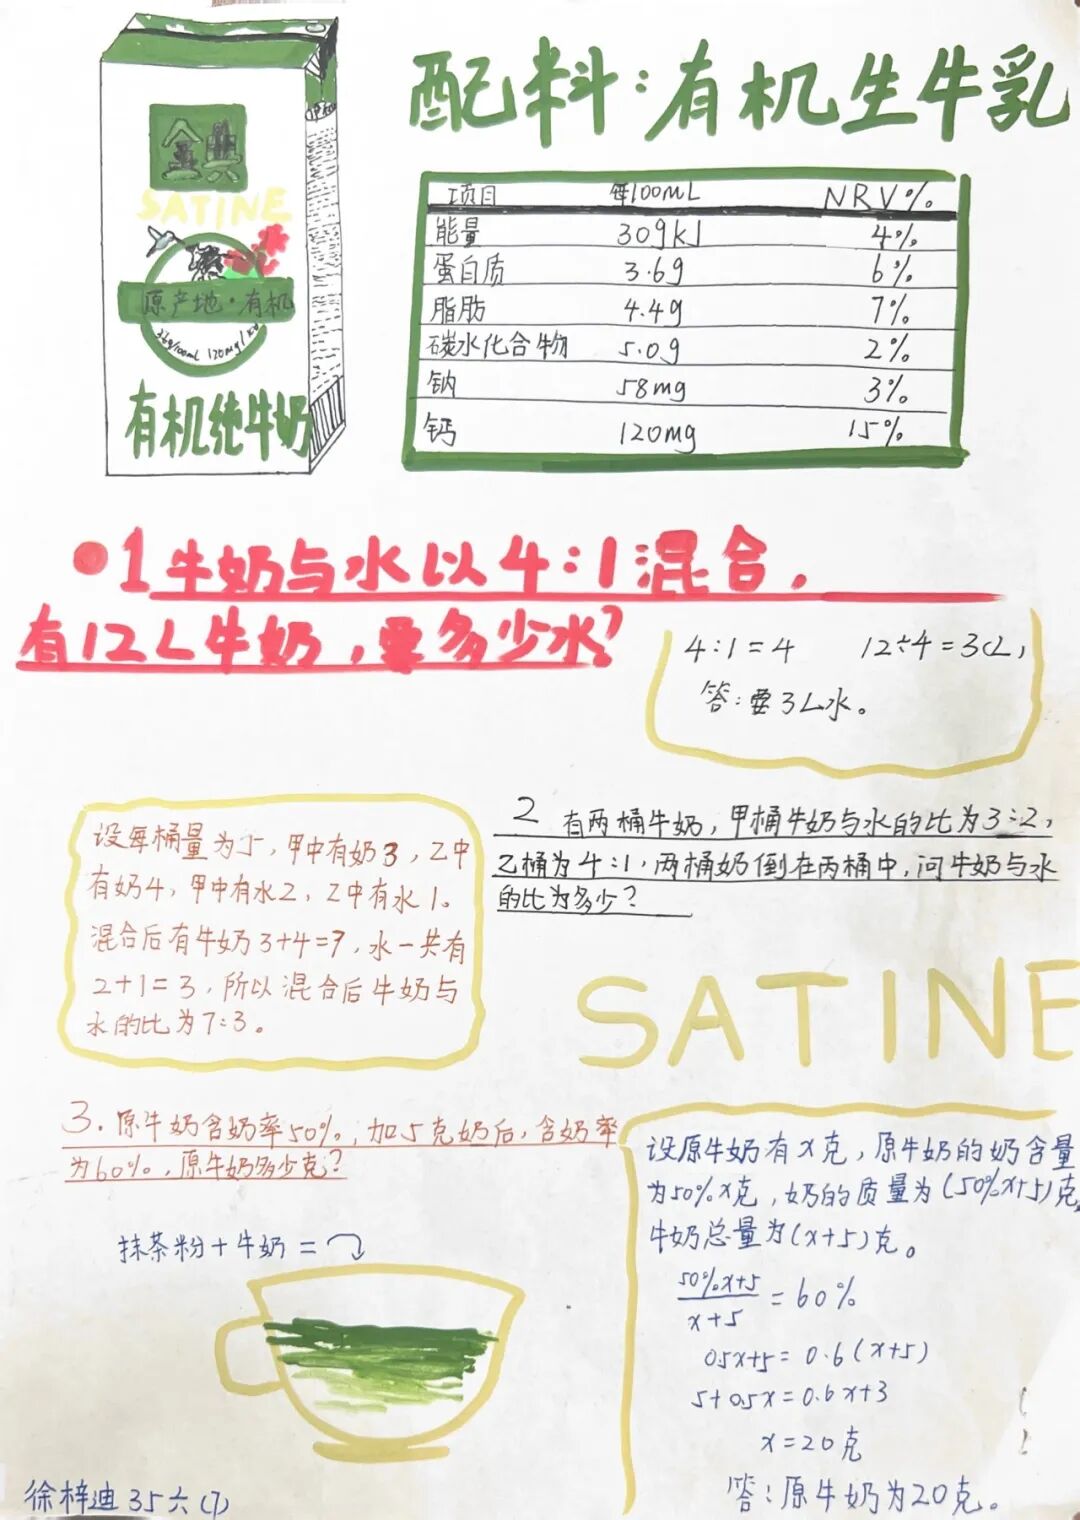 配料:有机生牛乳
金典
SATINE
原产地·有机
3.6g/100mL 120mg/100
有机纯牛奶
项目 每100mL NRV%
能量 309kJ 4%
蛋白质 3.6g 6%
脂肪 4.4g 7%
碳水化合物 5.0g 2%
钠 58mg 3%
钙 120mg 15%
1 牛奶与水以4:1混合,
有12L牛奶,要多少水?
4:1=4 12÷4=3(L)
答:要3L水。
2 有两桶牛奶,甲桶牛奶与水的比为3:2,
乙桶为4:1,两桶奶倒在两桶中,问牛奶与水
的比为多少?
设每桶量为5,甲中有奶3,乙中
有奶4,甲中有水2,乙中有水1。
混合后有牛奶3+4=7,水一共有
2+1=3,所以混合后牛奶与
水的比为7:3。
SATINE
3.原牛奶含奶率50%,加5克奶后,含奶率
为60%,原牛奶多少克?
抹茶粉+牛奶=
设原牛奶有x克,原牛奶的奶含量
为50%x克,奶的质量为(50%x+5)克
牛奶总量为(x+5)克。
50%x+5
x+5
=60%
0.5x+5=0.6(x+5)
5+0.5x=0.6x+3
x=20克
答:原牛奶为20克。
徐梓迪 35 六(7)